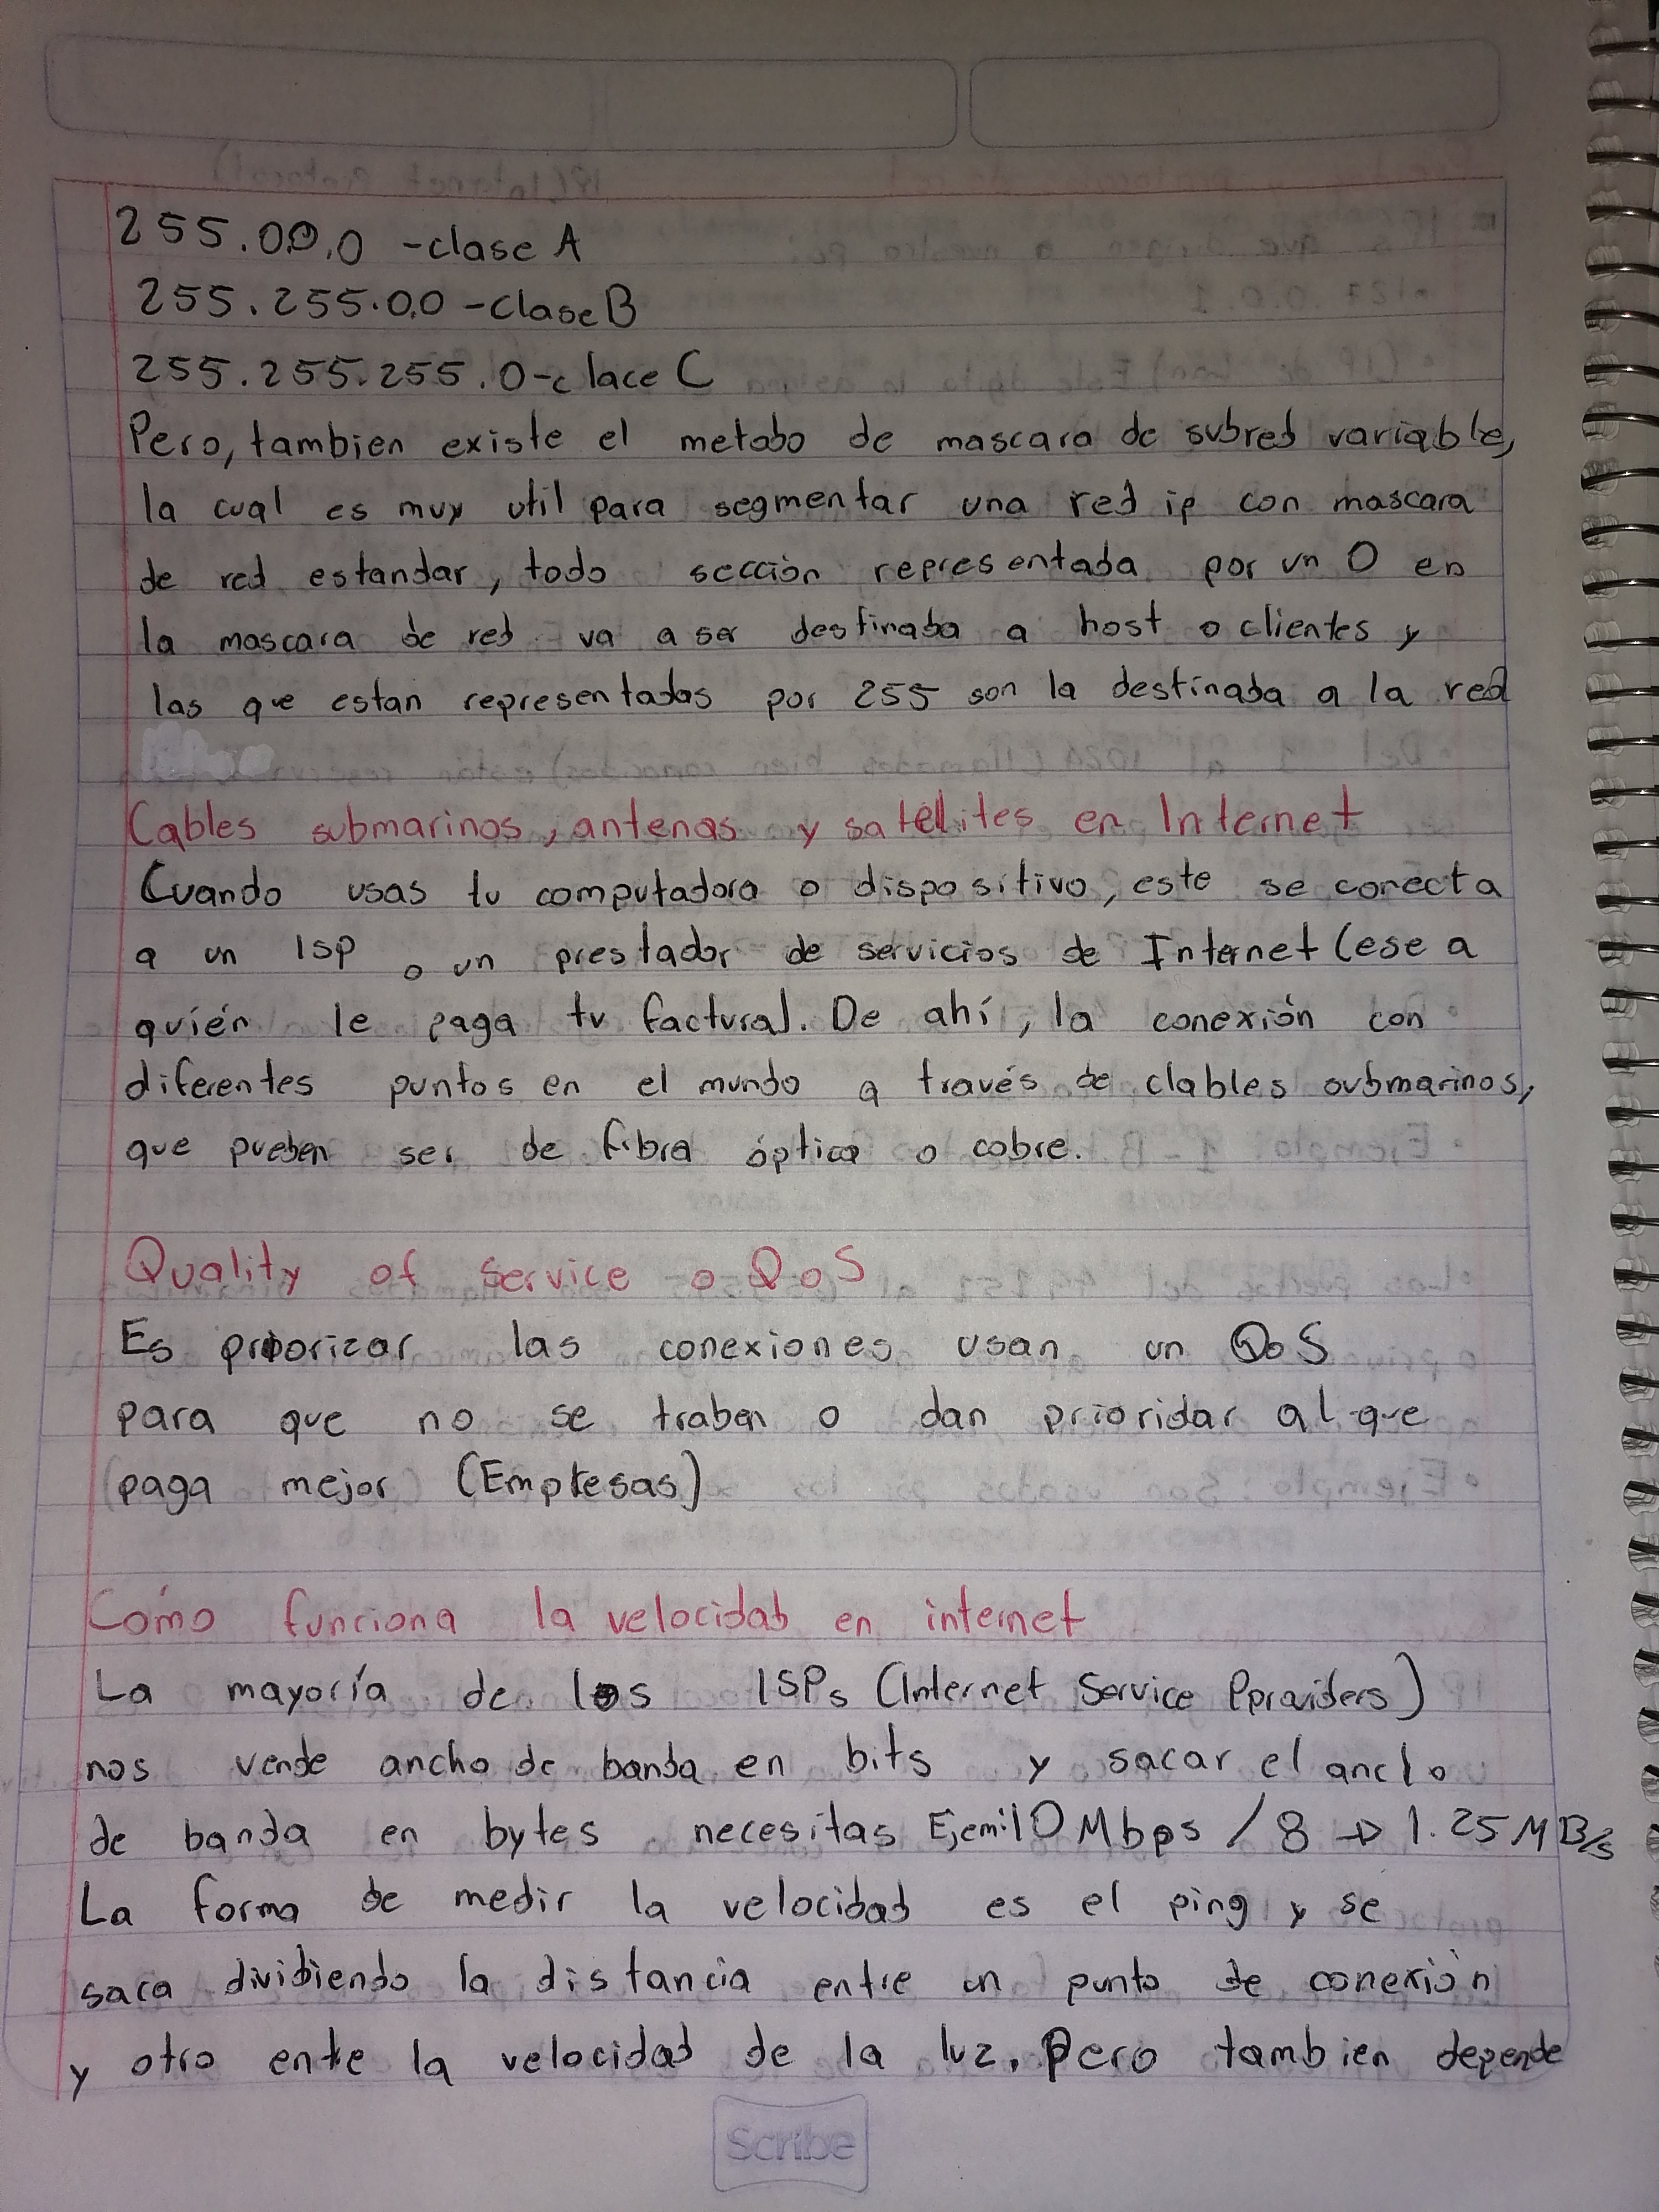 255.0.0.0 -clase A
255.255.0.0 -clase B
255.255.255.0-clace C
Pero, tambien existe el metodo de mascara de subred variable,
la cual es muy util para segmentar una red ip con mascara
de red estandar, todo sección representada por un 0 en
la mascara de red va a ser destinada a host o clientes y
las que estan representadas por 255 son la destinada a la red
Cables submarinos, antenas y satélites en Internet
Cuando usas tu computadora o dispositivo, este se conecta
a un ISP o un prestador de servicios de Internet (ese a
quién le paga tu factura). De ahí, la conexión con
diferentes puntos en el mundo a través de clables submarinos,
que pueden ser de fibra óptica o cobre.
Quality of Service o QoS
Es priorizar las conexiones usan un QoS
para que no se traben o dan prioridar al que
paga mejor (Empresas)
Cómo funciona la velocidad en internet
La mayoría de los ISPs (Internet Service Pproviders)
nos vende ancho de banda en bits y sacar el ancho
de banda en bytes necesitas Ejem:10 Mbps / 8 → 1.25 MB/s
La forma de medir la velocidad es el ping y se
saca dividiendo la distancia entre un punto de conexión
y otro ente la velocidad de la luz. Pero tambien depende
Scribe